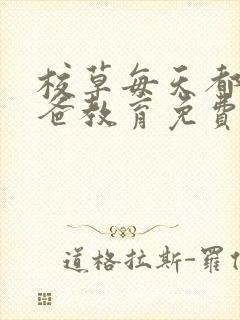 校草每天都
爸教育免费
道格拉斯-罗